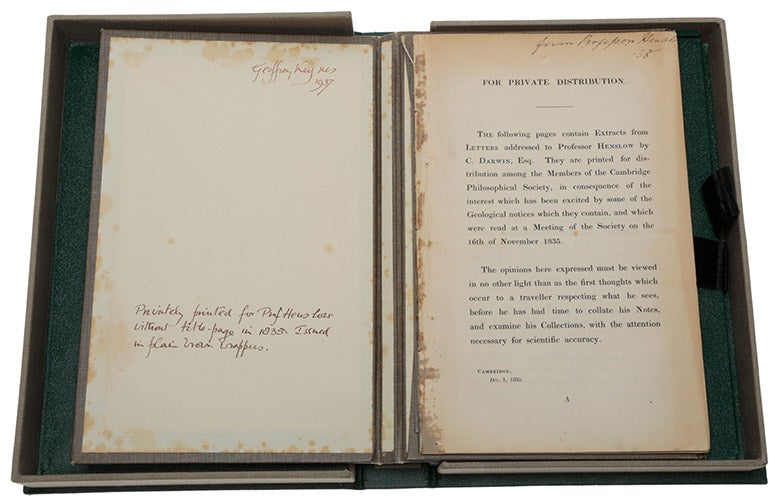 Geoffrey Keynes
1937
Privately printed for Prof Henslow
without title-page in 1835. Issued
in plain brown wrappers.
from Professor Hensl
FOR PRIVATE DISTRIBUTION.
THE following pages contain Extracts from
LETTERS addressed to Professor HENSLOW by
C. DARWIN, Esq. They are printed for dis-
tribution among the Members of the Cambridge
Philosophical Society, in consequence of the
interest which has been excited by some of the
Geological notices which they contain, and which
were read at a Meeting of the Society on the
16th of November 1835.
The opinions here expressed must be viewed
in no other light than as the first thoughts which
occur to a traveller respecting what he sees,
before he has had time to collate his Notes,
and examine his Collections, with the attention
necessary for scientific accuracy.
CAMBRIDGE,
Dec. 1, 1835.
A